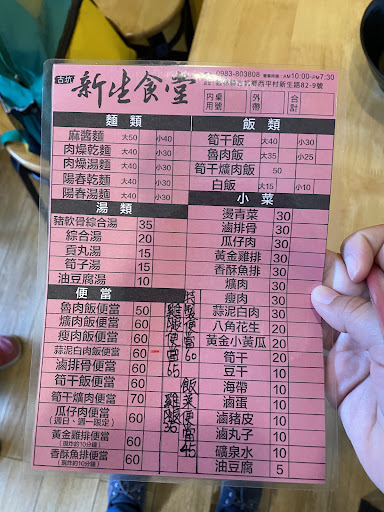 古坑 新生食堂
0983-803808 營業時間:AM10:00-PM7:30
西平村新生路82-9號
內用 桌號 外帶 合計
麵類
麻醬麵 大50 小40
肉燥乾麵 大40 小30
肉燥湯麵 大40 小30
陽春乾麵 大40 小30
陽春湯麵 大40 小30
湯類
豬軟骨綜合湯 35
綜合湯 20
貢丸湯 15
筍子湯 15
油豆腐湯 10
便當
魯肉飯便當 50
爌肉飯便當 60
瘦肉飯便當 60
蒜泥白肉飯便當 60
滷排骨便當 60
筍干飯便當 60
筍干爌肉便當 70
瓜仔肉便當 60
(週日、週一限定)
黃金雞排便當 60
(現炸約10分鐘)
香酥魚排便當 60
(現炸約10分鐘)
飯類
筍干飯 大40 小30
魯肉飯 大35 小25
筍干爌肉飯 50
白飯 大15 小10
小菜
燙青菜 30
滷排骨 30
瓜仔肉 30
黃金雞排 30
香酥魚排 30
爌肉 30
瘦肉 30
蒜泥白肉 30
八角花生 20
黃金小黃瓜 20
筍干 20
豆干 10
海帶 10
滷蛋 10
滷豬皮 10
滷丸子 10
礦泉水 10
油豆腐 5